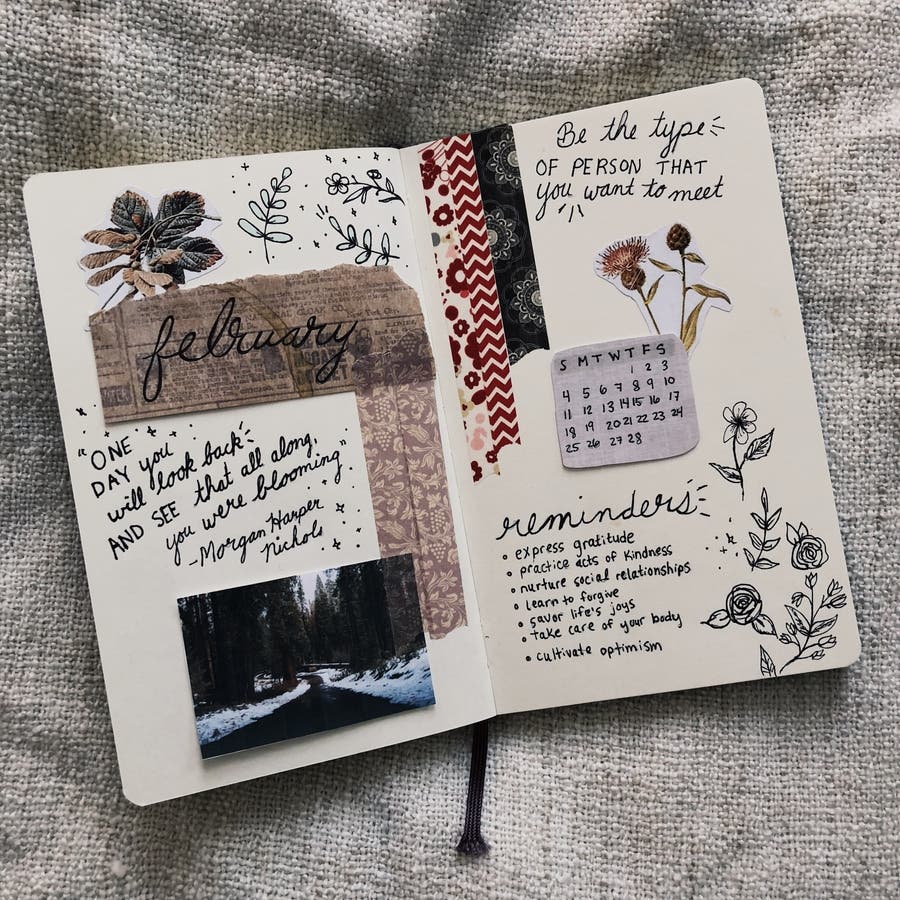 february
"ONE
DAY you
will look back
AND SEE that all along,
you were blooming"
-Morgan Harper
Nichols
Be the type
OF PERSON THAT
you want to meet
S M T W T F S
1 2 3
4 5 6 7 8 9 10
11 12 13 14 15 16 17
18 19 20 21 22 23 24
25 26 27 28
reminders
• express gratitude
• practice acts of kindness
• nurture social relationships
• learn to forgive
• savor life's joys
• take care of your body
• cultivate optimism